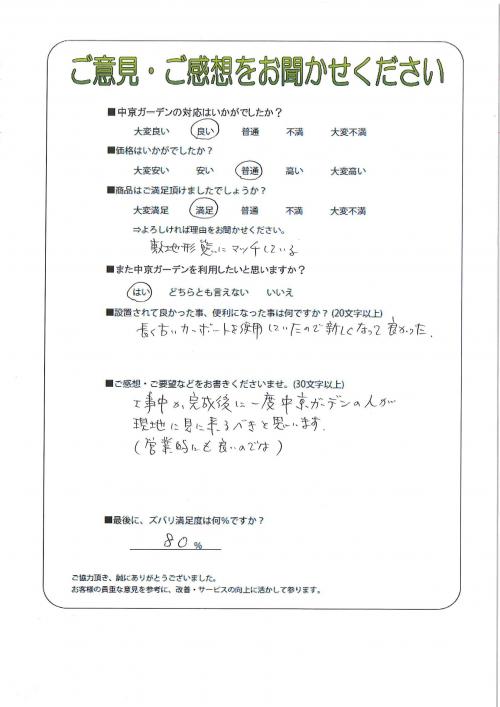 ご意見・ご感想をお聞かせください
■中京ガーデンの対応はいかがでしたか？
大変良い 良い 普通 不満 大変不満
■価格はいかがでしたか？
大変安い 安い 普通 高い 大変高い
■商品はご満足頂けましたでしょうか？
大変満足 満足 普通 不満 大変不満
⇒よろしければ理由をお聞かせください。
敷地形態にマッチしている
■また中京ガーデンを利用したいと思いますか？
はい どちらとも言えない いいえ
■設置されて良かった事、便利になった事は何ですか？(20文字以上)
長く古いカーポートを使用していたので新しくなって良かった.
■ご感想・ご要望などをお書きくださいませ。(30文字以上)
工事中か、完成後に一度中京ガーデンの人が
現地に見に来るべきと思います.
(営業的にも良いのでは)
■最後に、ズバリ満足度は何%ですか？
80%
ご協力頂き、誠にありがとうございました。
お客様の貴重な意見を参考に、改善・サービスの向上に活かして参ります。